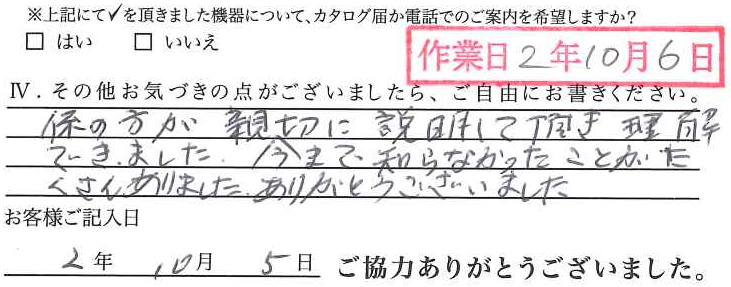 ※上記にて✓を頂きました機器について、カタログ届か電話でのご案内を希望しますか？
□ はい □ いいえ
作業日2年10月6日
Ⅳ．その他お気づきの点がございましたら、ご自由にお書きください。
係の方が親切に説明して頂き理解
できました。今まで知らなかったことがた
くさんありました。ありがとうございました
お客様ご記入日
2年10月5日 ご協力ありがとうございました。